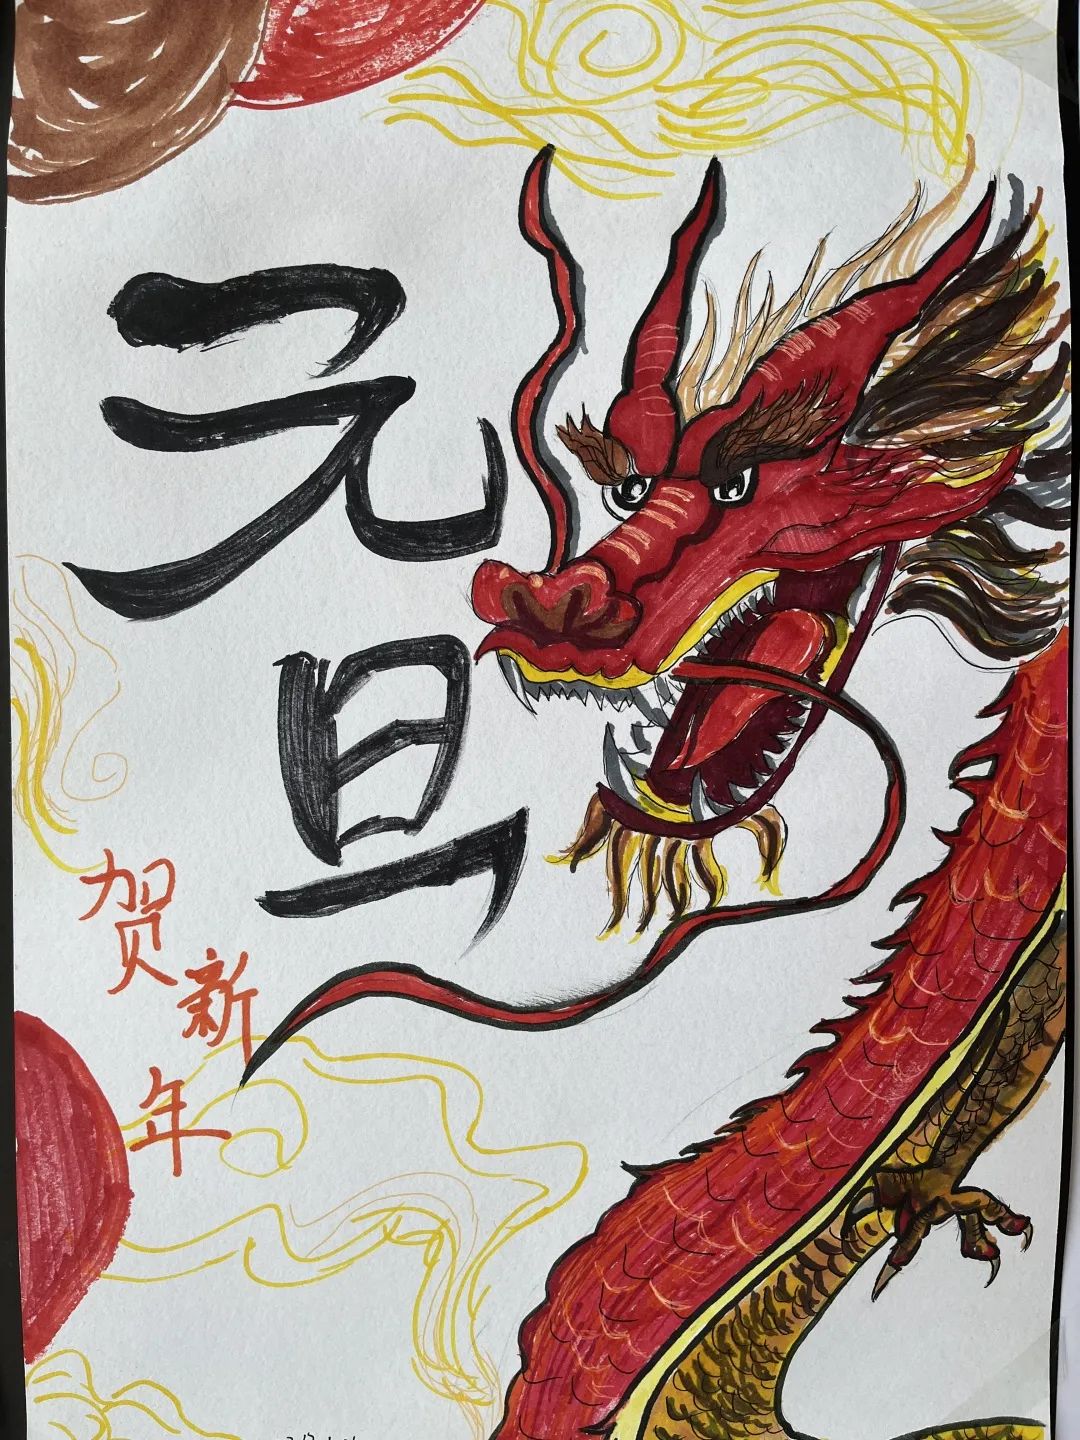 元旦
贺新年